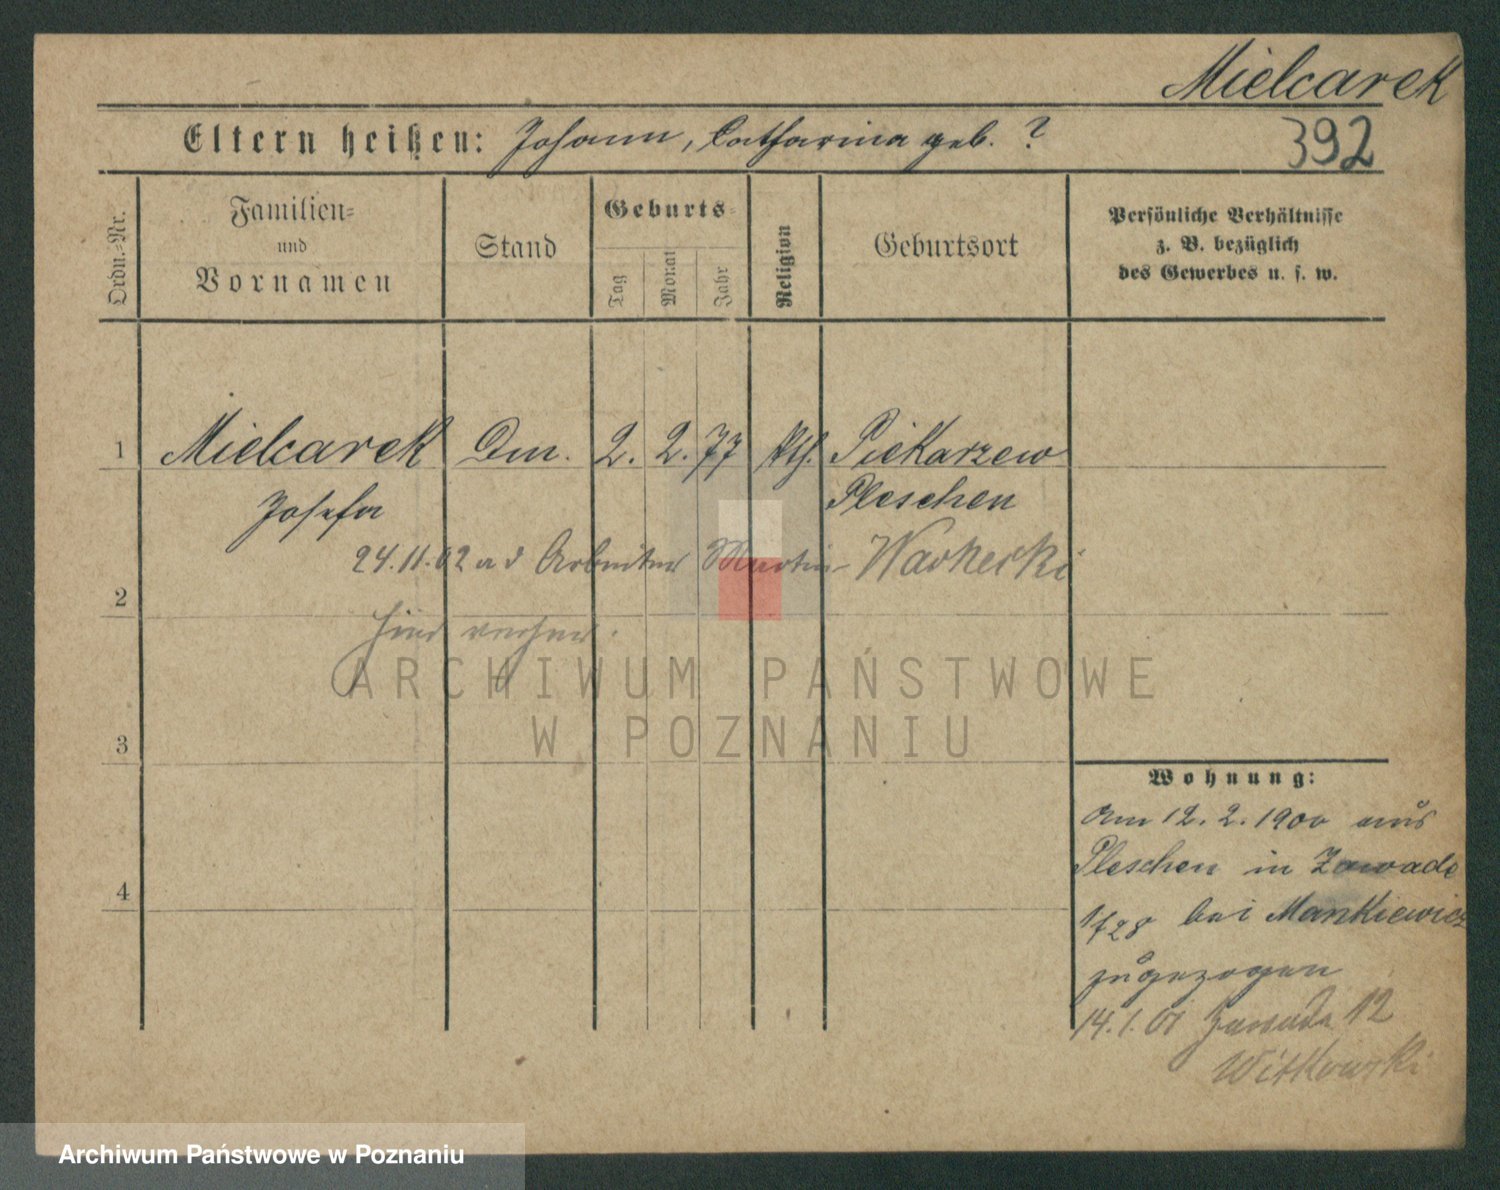 Mielcarek
Eltern heißen: Johann, Catharina geb. ?
392
Ordn.=Nr.
Familien=
und
Vornamen
Stand
Geburts=
Tag
Monat
Jahr
Religion
Geburtsort
Persönliche Verhältnisse
z. B. bezüglich
des Gewerbes u. s. w.
1 Mielcarek Dm. 2. 2. 77 kth. Piekarzew
Josefa Pleschen
24.11.02 a d Arbeiter Martin
2
hier
3
4
Wohnung:
Am 12. 2. 1900 aus
Pleschen in Zawade
1/28 bei Mankiewicz
zugezogen
14.1.01 Zawade 12
Witkowski
ARCHIWUM PAŃSTWOWE
W POZNANIU
Archiwum Państwowe w Poznaniu